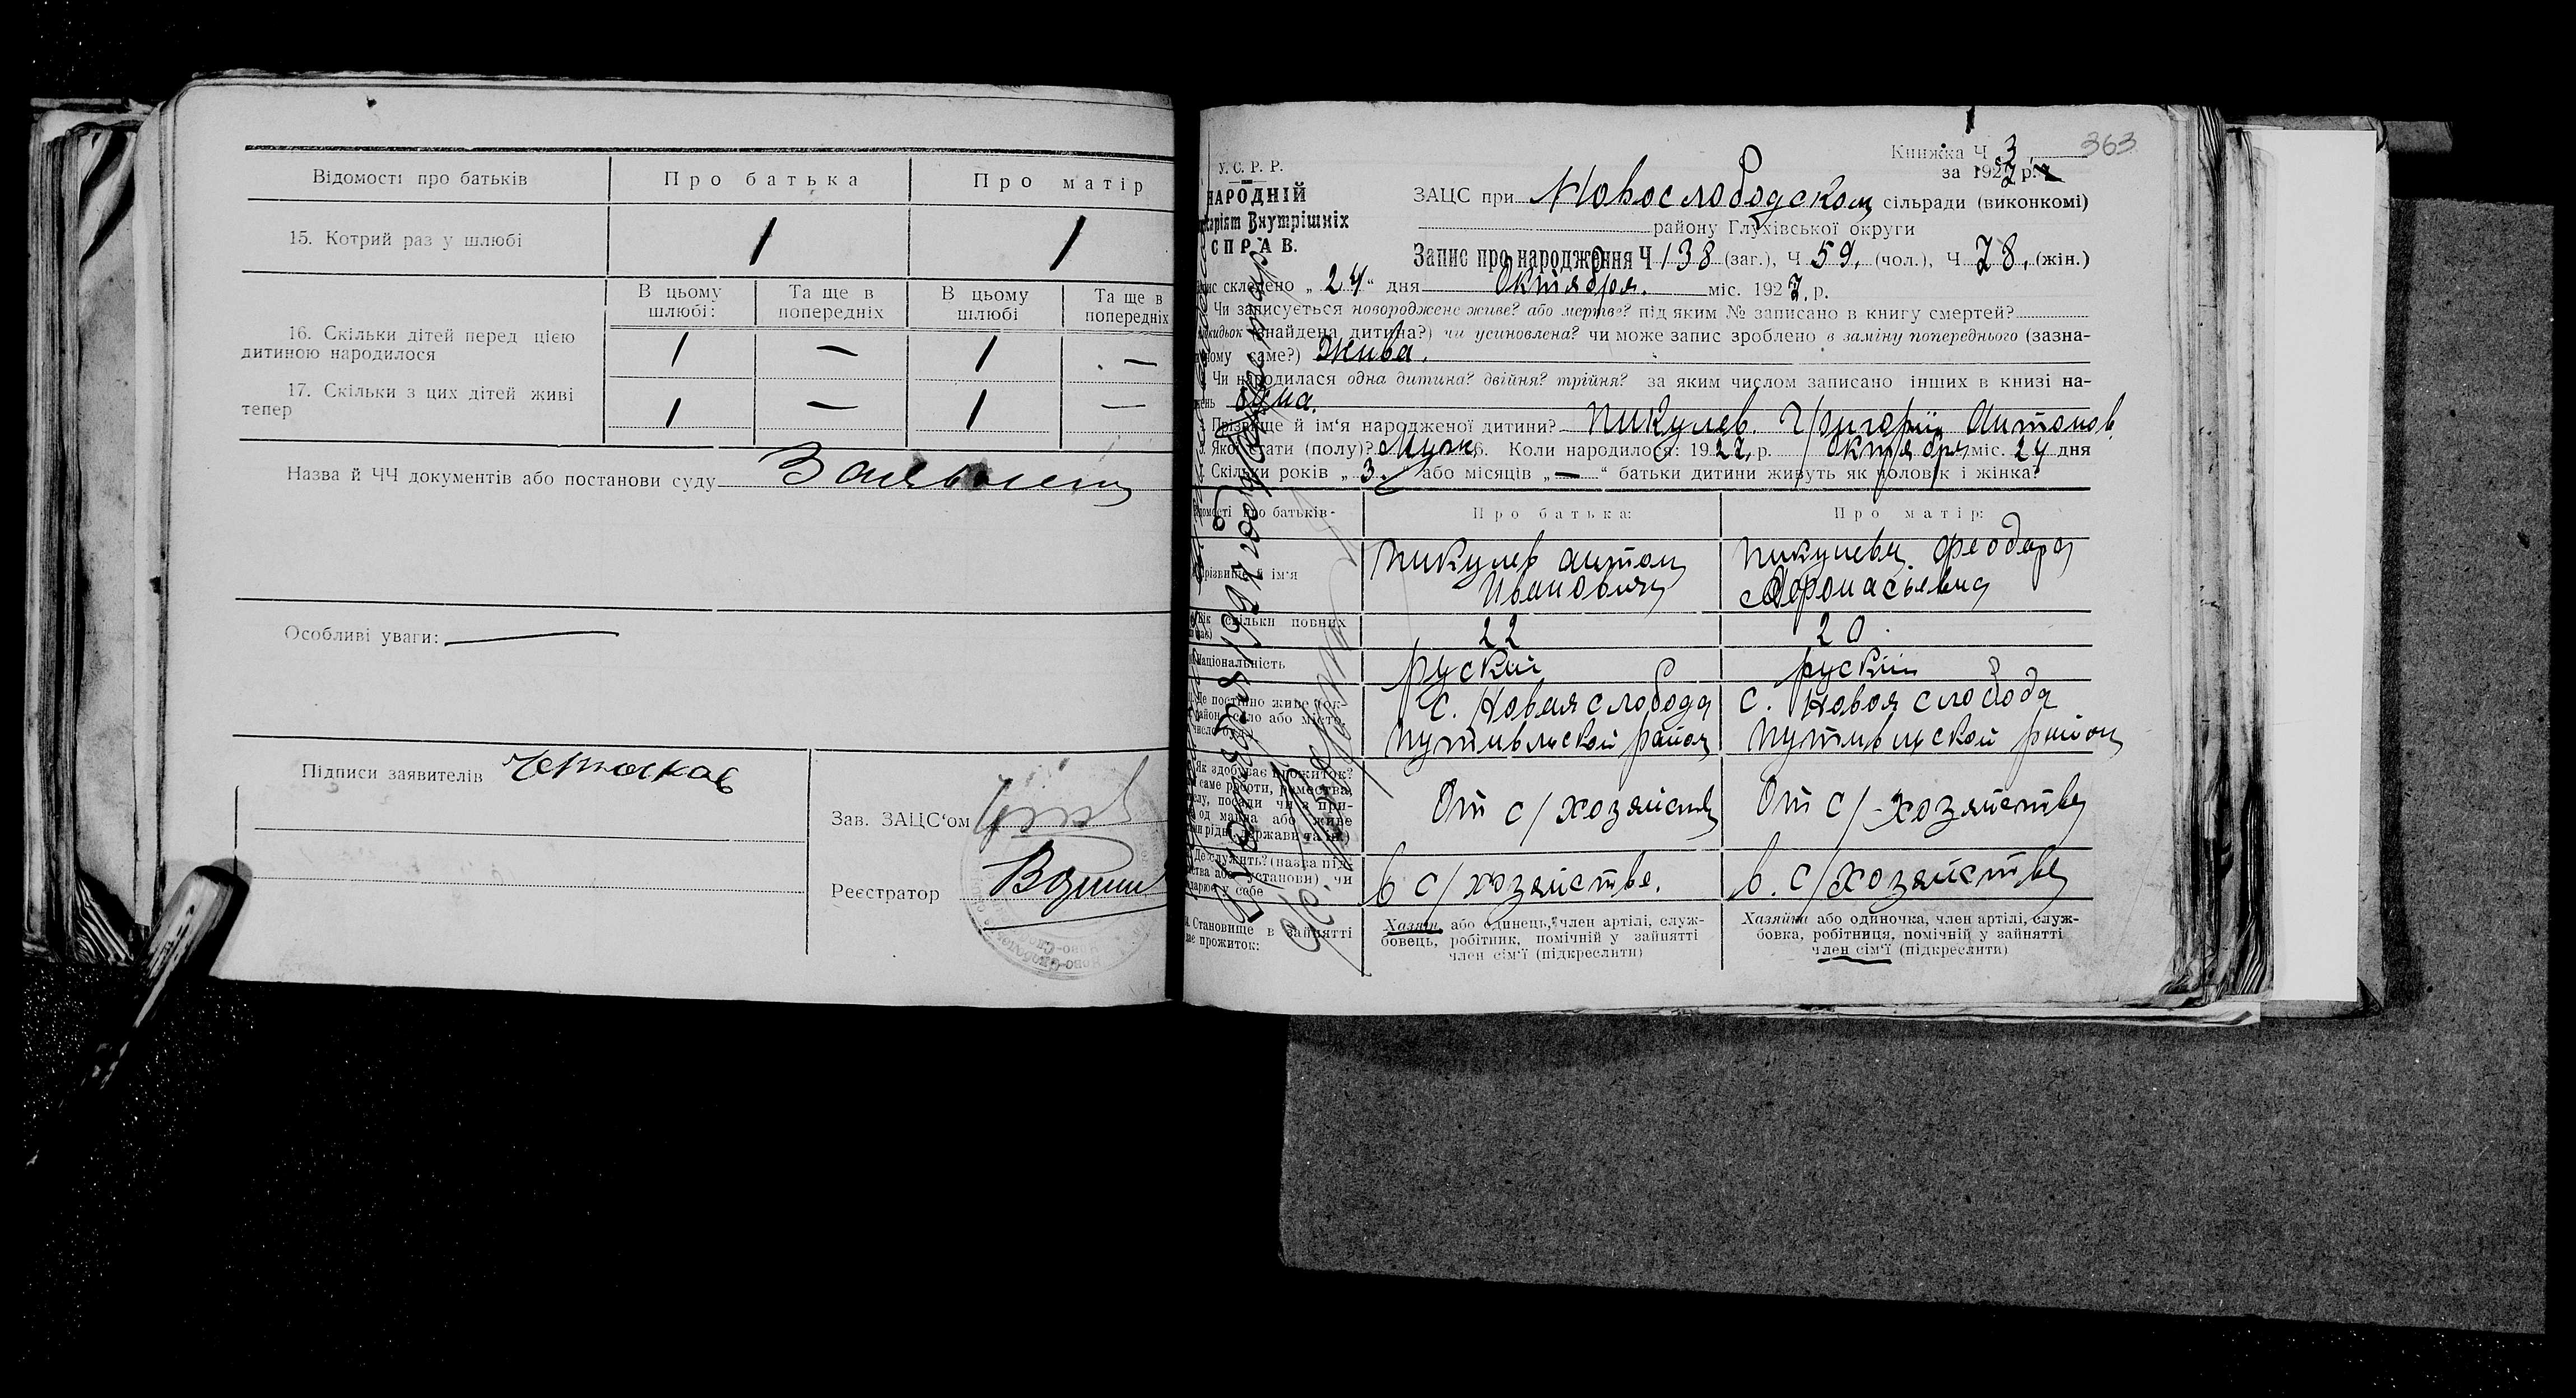 Відомості про батьків
Про батька
Про матір
15. Котрий раз у шлюбі
1
1
В цьому шлюбі:
Та ще в попередніх
В цьому шлюбі
Та ще в попередніх
16. Скільки дітей перед цією
дитиною народилося
1 — 1 —
17. Скільки з цих дітей живі
тепер
1 — 1 —
Назва й ЧЧ документів або постанови суду
Особливі уваги: —
Підписи заявителів
Зав. ЗАЦС‘ом
Реєстратор
363
Книжка Ч 3
за 1927 р.
У.С.Р.Р.
НАРОДНІЙ
Внутрішніх
СПРАВ.
ЗАЦС при Новослободском сільради (виконкомі)
району Глухівської округи
Запис про народження Ч 138 (заг.), Ч 59, (чол.), Ч 78, (жін.)
складено „ 24 “ дня Октября. міс. 1927, р.
Чи записується новороджене живе? або мертве? під яким № записано в книгу смертей?
знайдена дитина?) чи усиновлена? чи може запис зроблено в заміну попереднього (зазна-
саме?) Жива.
Чи народилася одна дитина? двійня? трійня? за яким числом записано інших в книзі на-
одна.
Прізвище й ім‘я народженої дитини? Пикулев. Григорий Антонов.
статі (полу)? Муж. 6. Коли народилося: 1927, р. Октября міс. 24 дня
Скільки років „ 3 “ або місяців „ — “ батьки дитини живуть як чоловік і жінка?
про батьків-
Про батька:
Про матір:
й ім‘я
Пикулев Антон
Иванович
Пикулева Феодора
Афонасьевна
скільки повних
22
20.
Національність
руский
руский
Де постійно живе
село або місто,
с. Новая слобода
Путивльской район
с. Новая слобода
Путивльской район
Як здобуває прожиток?
саме роботи, ремества,
От с/хозяйства
От с/-хозяйства
Де служить? (назва
або установи) чи
у себе
в с/хозяйстве.
в. с/хозяйстве
Становище в зайнятті
прожиток:
Хазяїн, або одинець, член артілі, служ-
бовець, робітник, помічній у зайнятті
член сім‘ї (підкреслити)
Хазяйка або одиночка, член артілі, служ-
бовка, робітниця, помічній у зайнятті
член сім‘ї (підкреслити)